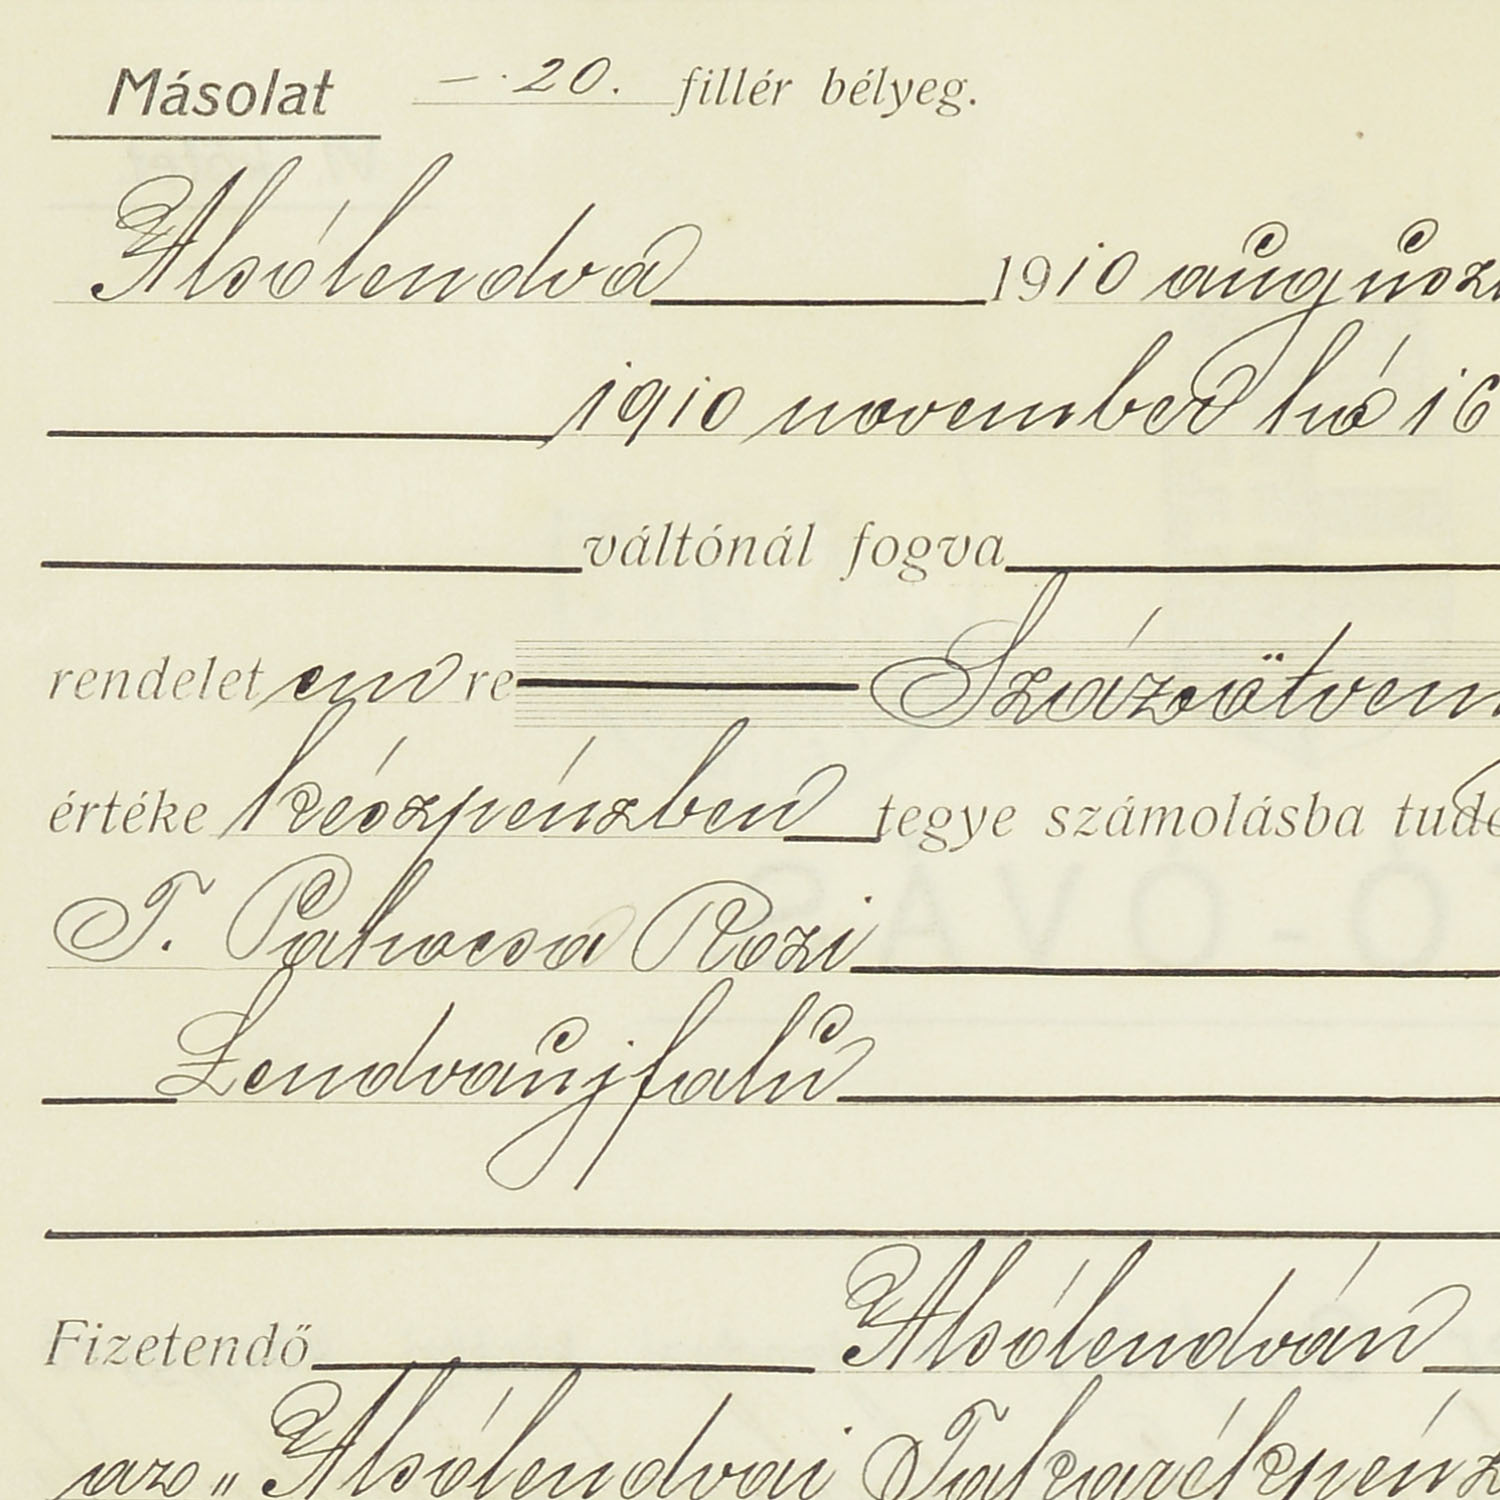 Másolat —.20. fillér bélyeg.
Alsólendva 1910 augusz
1910 november hó 16
váltónál fogva
rendelet em re Százötven
értéke készpénzben tegye számolásba tudó
T. Patocsa Rozi
Lendvaújfalu
Fizetendő Alsólendván
az „Alsólendvai Takarékpénz